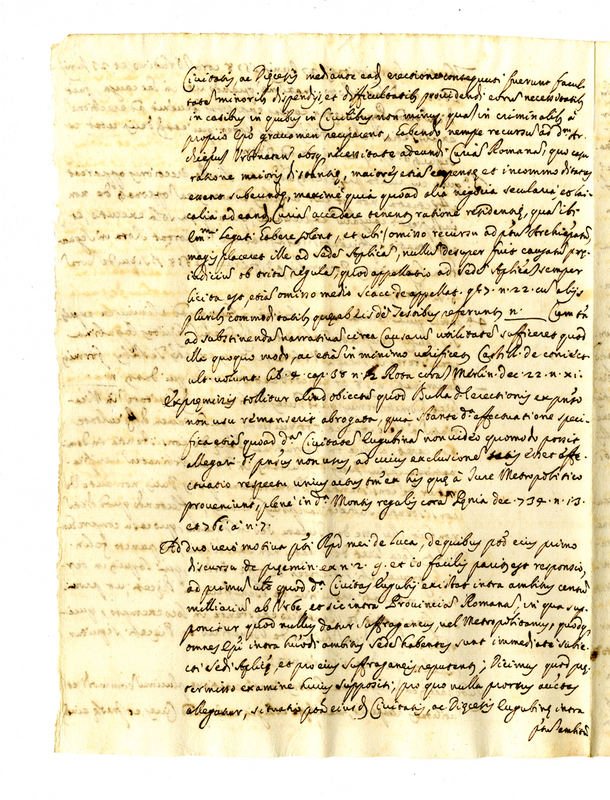 Civitatis ac Diœcesis mediante eadem erectione consequuti fuerunt facul-
tatem minoribus dispendijs, et difficultatibus providendi eorum necessitatibus
in casibus in quibus in Civilibus non minus, quam in criminalibus à
proprio Epõ gravamen recipiant, habendo nempe recursum ad Dm̃ Ar-
chiepum Urbinatem absque necessitate adeundi Curiam Romanam, quo cum
ratione maioris distantiæ, maiores etiam expensæ et incommoditates
essent subeundæ, maxime quia quoad alia negotia secularia et lai-
calia ad eand. Curiam accedere tenent ratione residentiæ, quam ibi
Em̃i Legati habere solent, et ubi omisso recursu ad ptum Archiepatum
magis placeret ille ad Sedem Aplicam, nullum desuper fuit causatum præ-
iudicium ob tritam regulam, quod appellatio ad Sedem Aplicam semper
licita est, etiam omisso medio Scacc. de appellat. q. 7. n. 22. cum alijs
pluribus commoditatibus quæ ab eisdem Testibus referuntur n. ___ Cum tñ
ad substinendam narrativam circa Causam utilitatem sufficeret quod
illa quoquo modo, ac etiam in minimo verificetur Castill. de coniect.
ult. volunt. lib. 4. cap. 58 n. 12 Rota coram Merlin. dec. 22. n. xi.
Ex præmissis tollitur aliud obiectum quod Bulla d. erectionis ex ptenso
non usu remanserit abrogata, quia stante d. effectuatione speci-
fica etiam quoad dm̃ Civitatem Eugubinam non video quomodo possit
allegari d. ptensus non usus, ad cuius exclusionem satis esset effe-
ctuatio respectu unius actus tm̃ ex his quæ à Iure Metropolitico
proveniunt, plene in d. Montis regalis coram Penia dec. 734. n. 13.
et 761. à n. 7.
Ad duo vero motiva pti Rpd mei de Luca, de quibus pnt eius primo
discursu de præemin. ex n. 2. 9. et 10 facilis pariter est responsio,
ad primum ult. quod d. Civitas Eugubij existat intra ambitum centum
milliarium ab Urbe, et sic intra Provinciam Romanam, in qua sup-
ponitur quod nullus datur suffraganeus, vel Metropolitanus, quodq.
omnes Epĩ intra huiusmodi ambitum Sedem habentes sunt immediatè subie-
cti Sedi Aplicæ, et pro eius suffraganeis reputentur; Dicimus quod præ-
termisso examine huius suppositi, pro quo nulla prorsus auctoritas
allegatur, situatio ptm eiusdem Civitatis, ac Diœcesis Eugubinæ intra
ptum ambitum